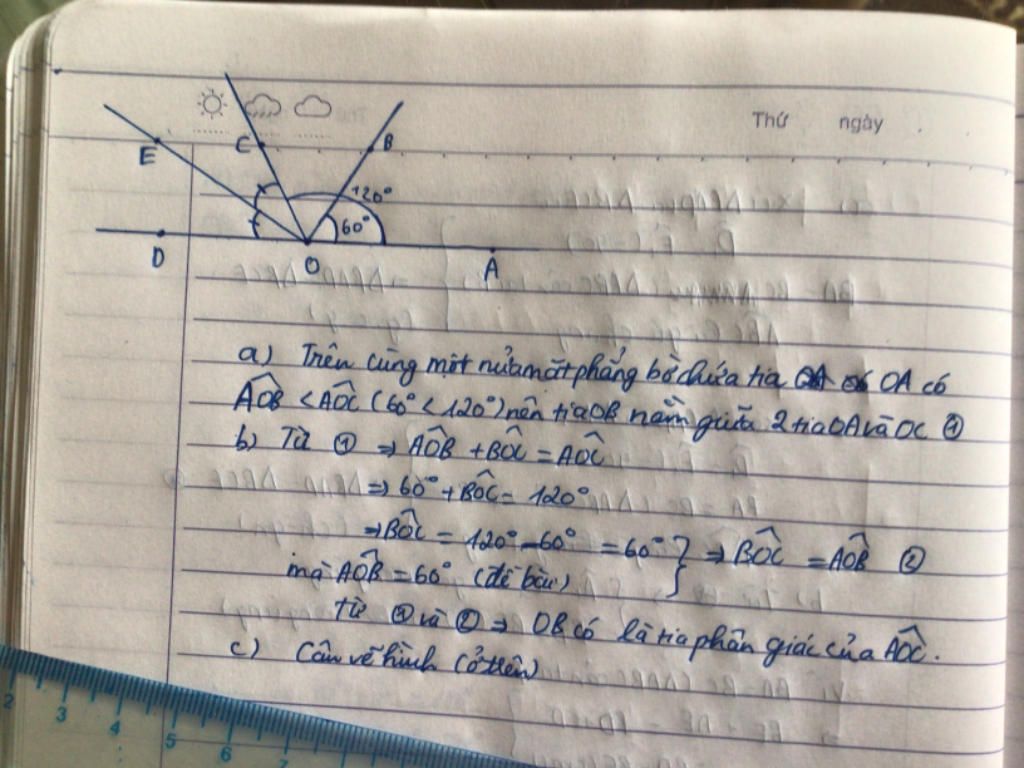 Thứ ngày
E
C
B
120°
60°
D
O
A
a) Trên cùng một nửa mặt phẳng bờ chứa tia OA có
AÔB < AÔC (60° < 120°) nên tia OB nằm giữa 2 tia OA và OC ①
b) Từ ① ⇒ AÔB + BÔC = AÔC
⇒ 60° + BÔC = 120°
⇒ BÔC = 120° - 60° = 60° } ⇒ BÔC = AÔB ②
mà AÔB = 60° (đề bài)
từ ① và ② ⇒ OB có là tia phân giác của AÔC.
c) Câu vẽ hình (ở trên)
2 3 4 5 6 7